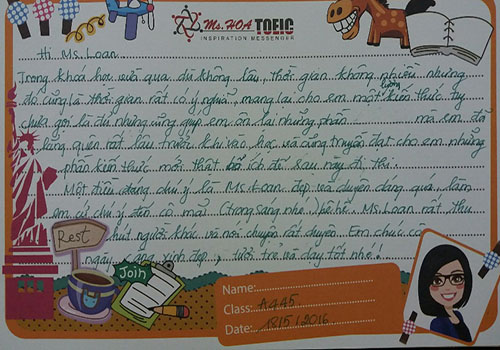 Ms. HOA TOEIC
INSPIRATION MESSENGER
Hi Ms. Loan.
Trong khoá học vừa qua dù không lâu, thời gian không nhiều nhưng
đó cũng là thời gian rất có ý nghĩa, mang lại cho em một lượng kiến thức tuy
chưa gọi là đủ nhưng cũng giúp em ôn lại những phần ........ mà em đã
lãng quên rất lâu trước khi vào học và cũng truyền đạt cho em những
phần kiến thức mới thật bổ ích để sau này đi thi.
Một điều đáng chú ý là Ms. Loan đẹp và duyên dáng quá, làm
em cứ chú ý đến cô mãi (trong sáng nhé) Ms. Loan rất thu
hút người khác và nói chuyện rất duyên. Em chúc cô
ngày càng xinh đẹp, tươi trẻ và dạy tốt nhé!
Rest
Join
Name:
Class: A4A5
Date: 18/5/2016